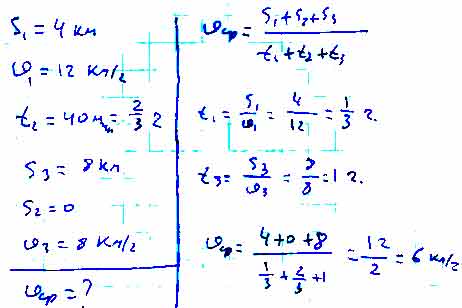 S₁ = 4 км
υ₁ = 12 км/г
t₂ = 40 мин = 2/3 г
S₃ = 8 км
S₂ = 0
υ₃ = 8 км/г
υср = ?
υср = (S₁ + S₂ + S₃)/(t₁ + t₂ + t₃)
t₁ = S₁/υ₁ = 4/12 = 1/3 г.
t₃ = S₃/υ₃ = 8/8 = 1 г.
υср = (4 + 0 + 8)/(1/3 + 2/3 + 1) = 12/2 = 6 км/г